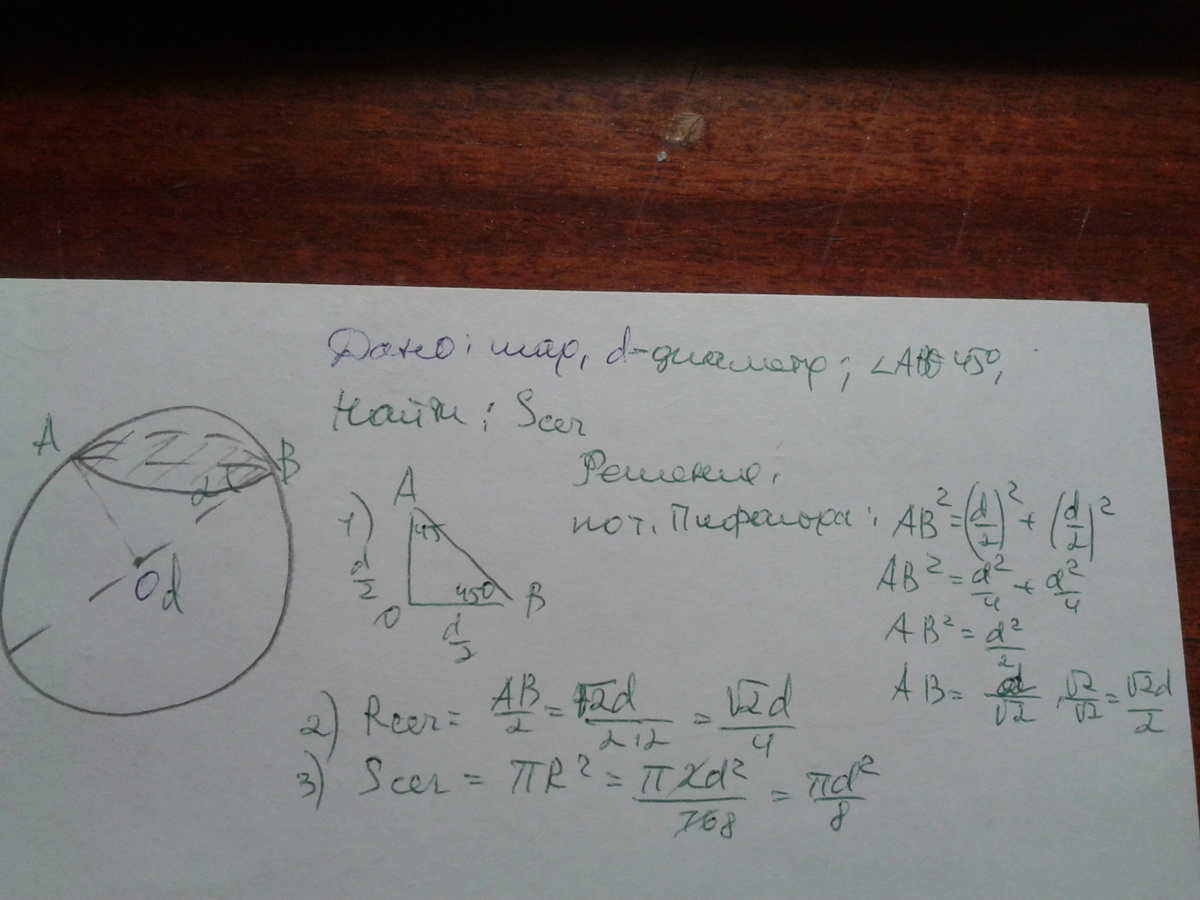 Дано: шар, d-диаметр; ∠ABO 45°;
Найти: Sсег
Решение:
A
B
d
O
d
1)
A
45
45°
B
O
d/2
d/2
по т. Пифагора: AB² = (d/2)² + (d/2)²
AB² = d²/4 + d²/4
AB² = d²/2
AB = d/√2 · √2/√2 = √2d/2
2) Rсег = AB/2 = √2d/2·2 = √2d/4
3) Sсег = πR² = π2d²/16 8 = πd²/8